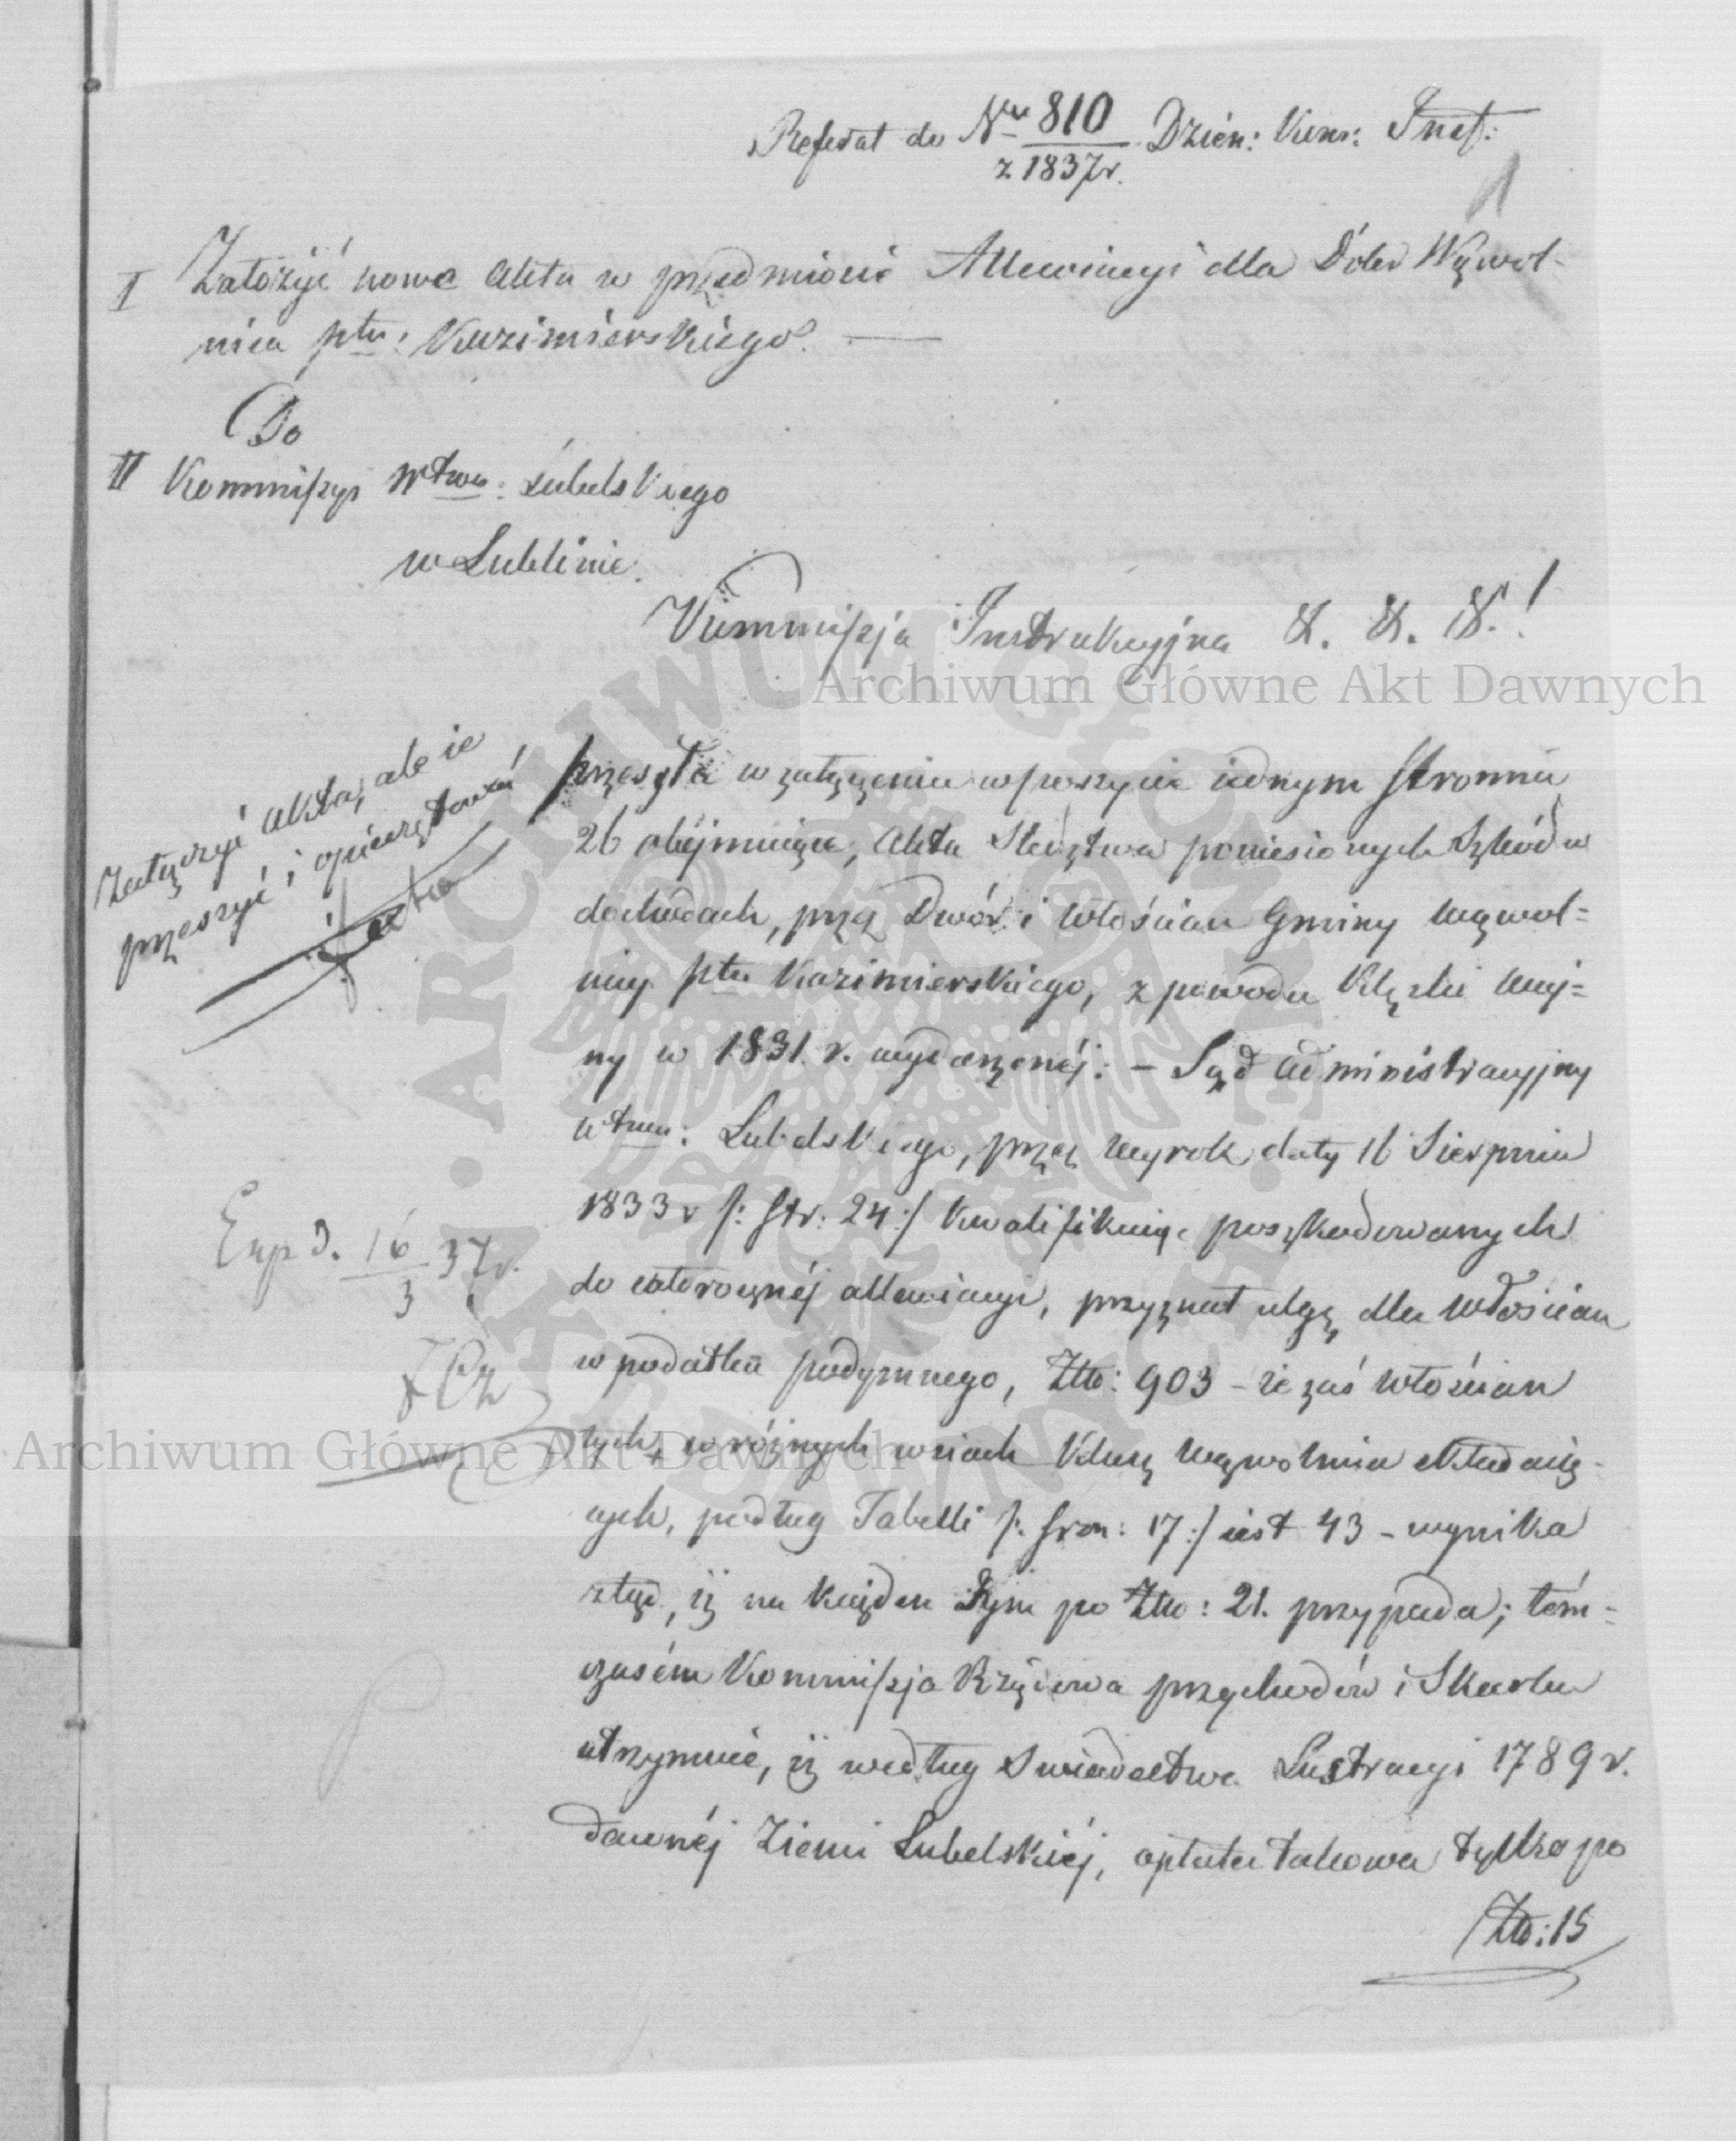 Referat do Nru 810 Dzien: Kom: Inst:
z 1837 r.
I Założyć nowe Akta w przedmiocie Allewiacyi dla Dóbr Wąwol-
nica ptu: Kazimierskiego. —
Do
II Kommissyi Wtwa: Lubelskiego
w Lublinie.
Kommissja Instrukcyjna &. &. &.!
Załączyć akta, ale ie
przeszyć i opieczętować
przesyła w załączeniu w poszycie iednym stronnic
26 obejmuiące, Akta Śledztwa poniesionych Szkód w
dochodach, przez Dwór i Włościan Gminy Wąwol-
nicy ptu Kazimierskiego, z powodu klęski woj-
ny w 1831. r. wydarzonéj: – Sąd Administracyjny
Wtwa: Lubelskiego, przez wyrok daty 16 Sierpnia
1833 r /: str: 24 :/ kwalifikuiąc poszkodowanych
do całorocznéj allewiacyi, przyznał ulgę dla Włościan
w podatku podymnego, Złp: 903 – że zaś Włościan
tych, w różnych wsiach Klucz Wąwolnica składaią-
cych, podług Tabelli /: stron: 17 :/ iest 43 – wynika
ztąd, iż na każden Dym po Złp: 21. przypada; tém-
czasém Kommissja Rządowa przychodów i Skarbu
utrzymuie, iż według Świadectwa Lustracyi 1789 r.
dawnéj Ziemi Lubelskiéj, opłata takowa tylko po
Złp: 15
Exp d. 16/3 37 r.